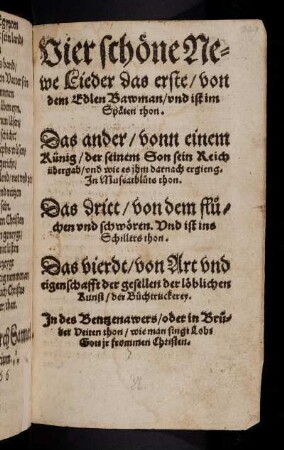 Vier schöne Ne-
we Lieder das erste/von
dem Edlen Bawman/vnd ist im
Späten thon.
Das ander/vonn einem
Künig/der seinem Son sein Reich
übergab/vnd wie es jhm darnach ergieng.
In Muscatblüts thon.
Das dritt/von dem flü-
chen vnd schwören. Vnd ist ins
Schillers thon.
Das vierdt/von Art vnd
eigenschafft der gesellen der löblichen
Kunst/der Büchtruckerey.
In des Bentzenawers/oder in Brü-
der Veiten thon/wie man singt Lobt
Gott jr frommen Christen.